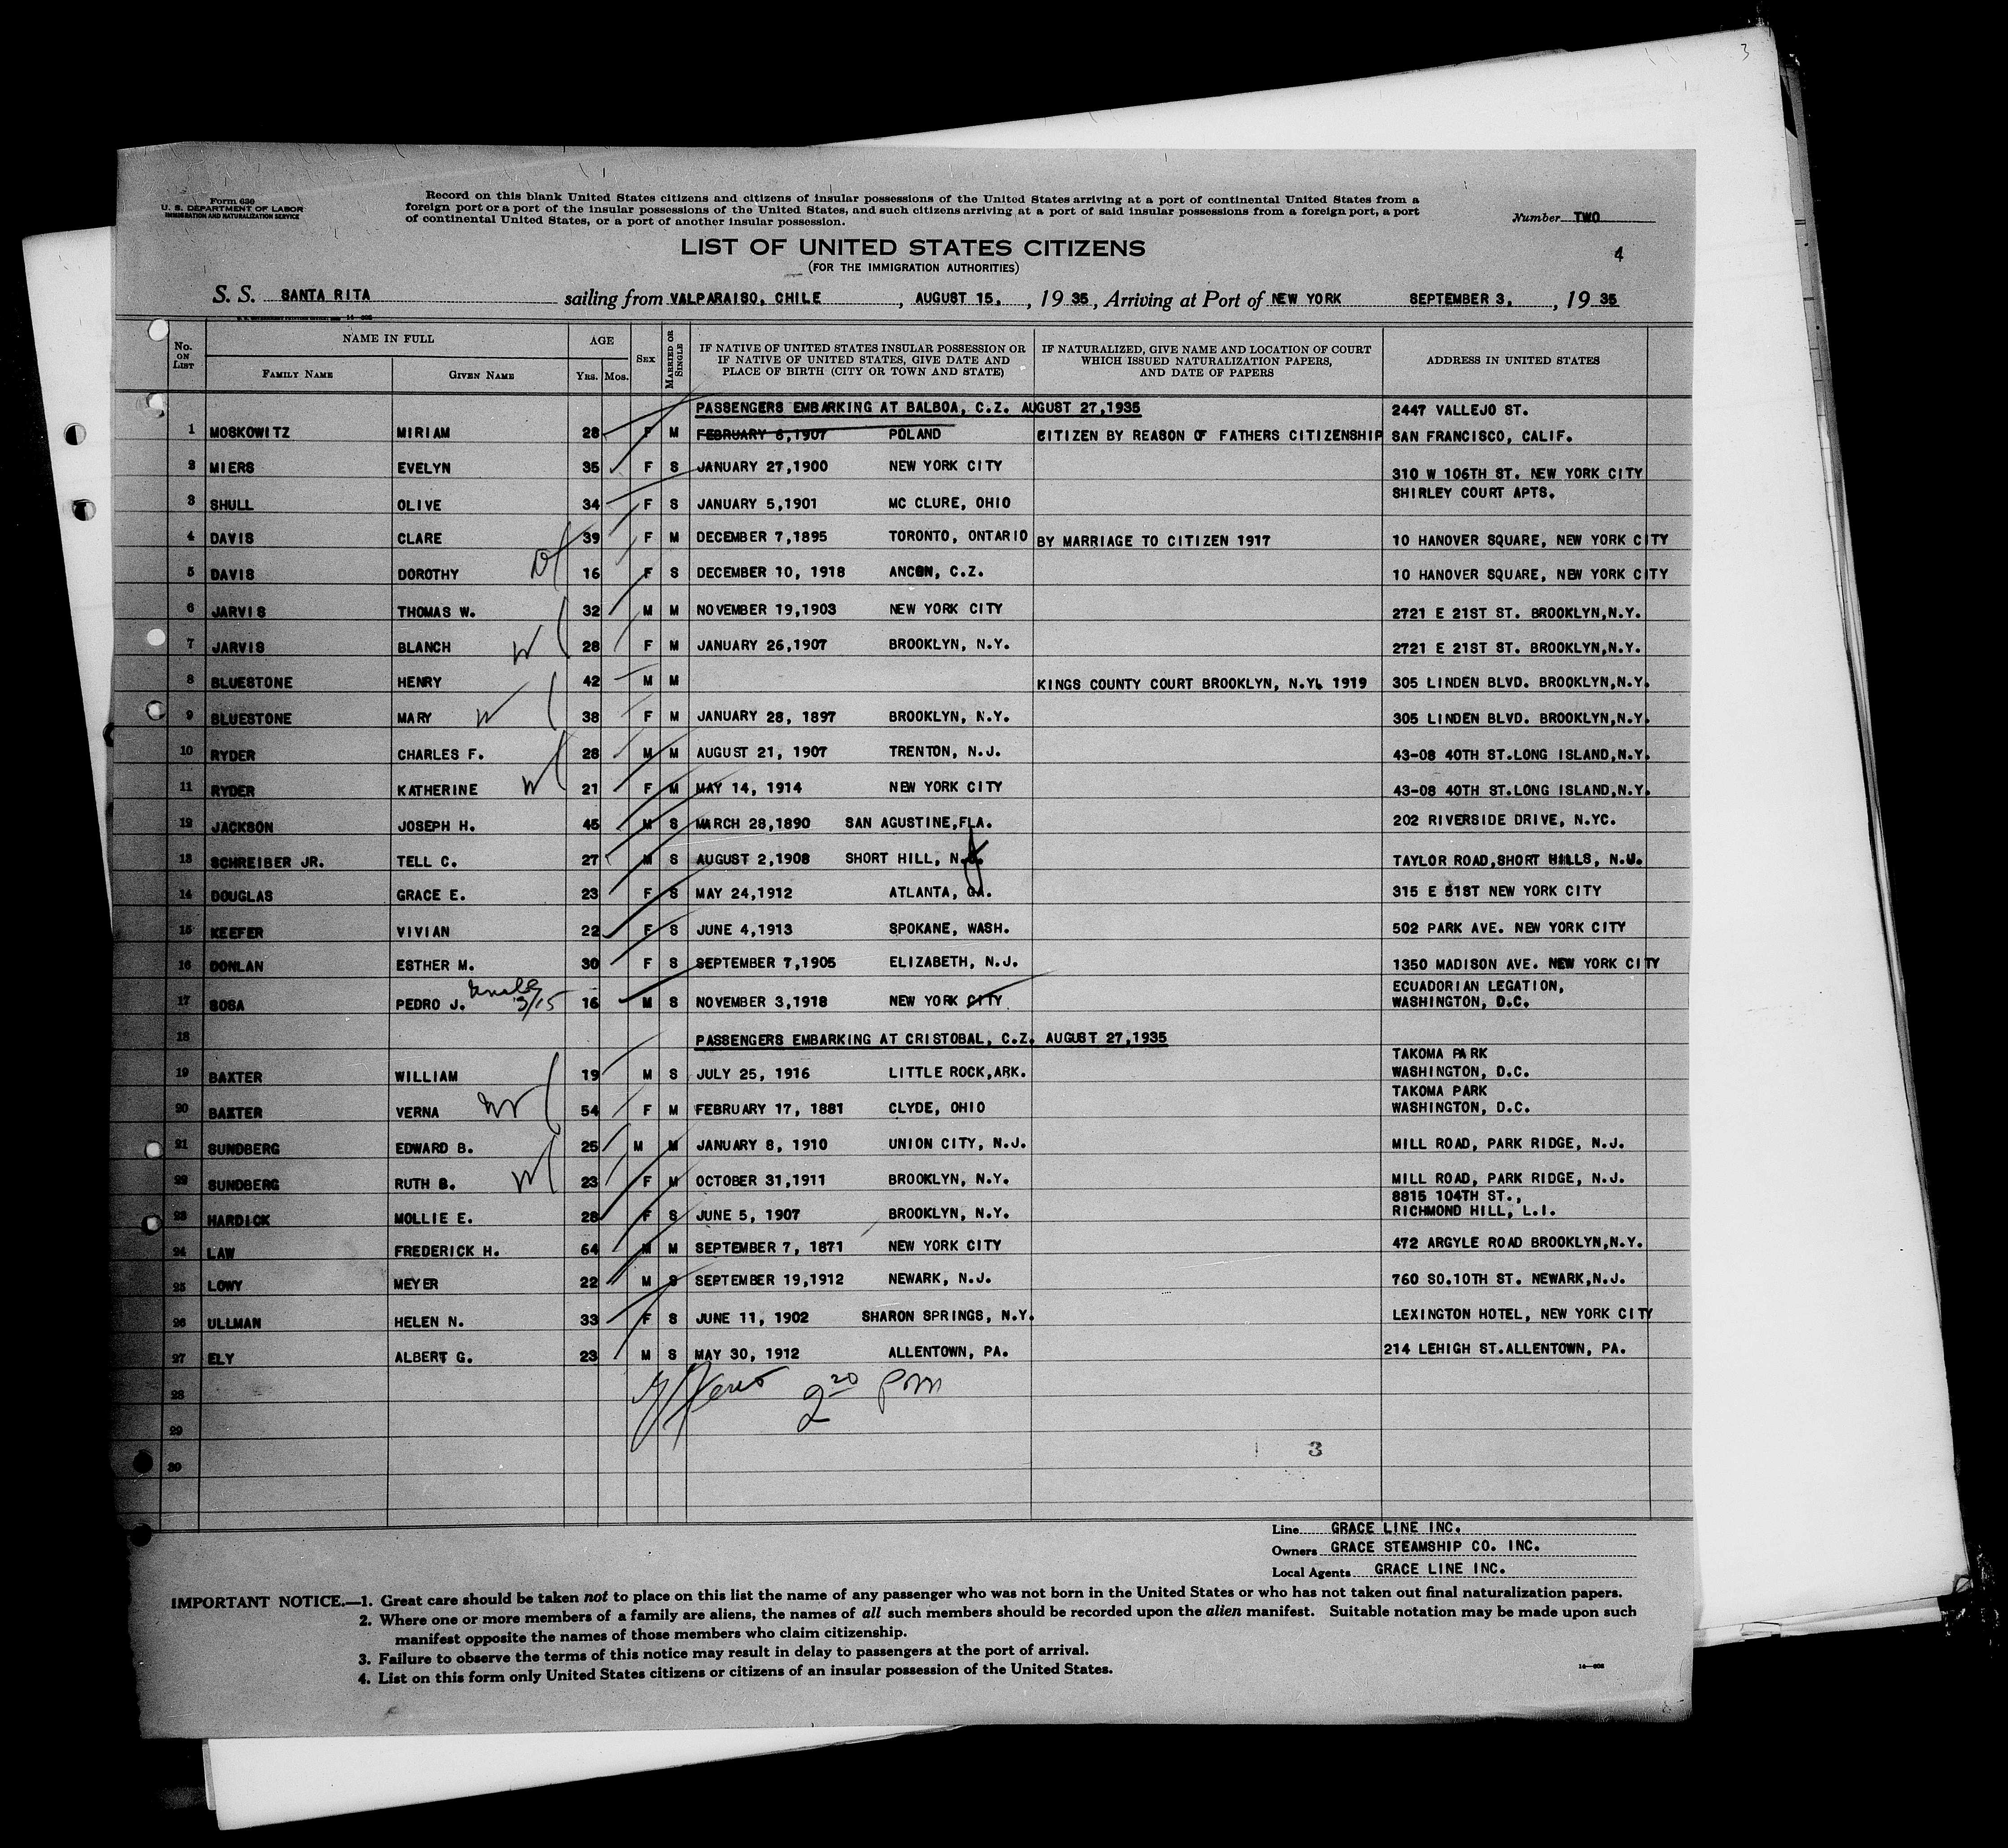 3
Form 630
U. S. DEPARTMENT OF LABOR
IMMIGRATION AND NATURALIZATION SERVICE
Record on this blank United States citizens and citizens of insular possessions of the United States arriving at a port of continental United States from a
foreign port or a port of the insular possessions of the United States, and such citizens arriving at a port of said insular possessions from a foreign port, a port
of continental United States, or a port of another insular possession.
Number TWO
LIST OF UNITED STATES CITIZENS
4
(FOR THE IMMIGRATION AUTHORITIES)
S. S. SANTA RITA sailing from VALPARAISO, CHILE, AUGUST 15, , 19 35, Arriving at Port of NEW YORK SEPTEMBER 3. , 19 35
No. ON LIST NAME IN FULL AGE SEX MARRIED OR SINGLE IF NATIVE OF UNITED STATES INSULAR POSSESSION OR IF NATIVE OF UNITED STATES, GIVE DATE AND PLACE OF BIRTH (CITY OR TOWN AND STATE) IF NATURALIZED, GIVE NAME AND LOCATION OF COURT WHICH ISSUED NATURALIZATION PAPERS, AND DATE OF PAPERS ADDRESS IN UNITED STATES
FAMILY NAME GIVEN NAME Yrs. Mos.
PASSENGERS EMBARKING AT BALBOA, C.Z. AUGUST 27,1935 2447 VALLEJO ST.
1 MOSKOWITZ MIRIAM 28 F M FEBRUARY 6,1907 POLAND CITIZEN BY REASON OF FATHERS CITIZENSHIP SAN FRANCISCO, CALIF.
2 MIERS EVELYN 35 F S JANUARY 27,1900 NEW YORK CITY 310 W 106TH ST. NEW YORK CITY
3 SHULL OLIVE 34 F S JANUARY 5,1901 MC CLURE, OHIO SHIRLEY COURT APTS.
4 DAVIS CLARE 39 F M DECEMBER 7,1895 TORONTO, ONTARIO BY MARRIAGE TO CITIZEN 1917 10 HANOVER SQUARE, NEW YORK CITY
5 DAVIS DOROTHY 16 F S DECEMBER 10, 1918 ANCON, C.Z. 10 HANOVER SQUARE, NEW YORK CITY
6 JARVIS THOMAS W. 32 M M NOVEMBER 19,1903 NEW YORK CITY 2721 E 21ST ST. BROOKLYN,N.Y.
7 JARVIS BLANCH W 28 F M JANUARY 26,1907 BROOKLYN, N.Y. 2721 E 21ST ST. BROOKLYN,N.Y.
8 BLUESTONE HENRY 42 M M KINGS COUNTY COURT BROOKLYN, N.Y. 1919 305 LINDEN BLVD. BROOKLYN,N.Y.
9 BLUESTONE MARY W 38 F M JANUARY 28, 1897 BROOKLYN, N.Y. 305 LINDEN BLVD. BROOKLYN,N.Y.
10 RYDER CHARLES F. 28 M M AUGUST 21, 1907 TRENTON, N.J. 43-08 40TH ST.LONG ISLAND,N.Y.
11 RYDER KATHERINE W 21 F M MAY 14, 1914 NEW YORK CITY 43-08 40TH ST.LONG ISLAND,N.Y.
12 JACKSON JOSEPH H. 45 M S MARCH 28,1890 SAN AGUSTINE,FLA. 202 RIVERSIDE DRIVE, N.YC.
13 SCHREIBER JR. TELL C. 27 M S AUGUST 2,1908 SHORT HILL, N.J. TAYLOR ROAD,SHORT HILLS, N.J.
14 DOUGLAS GRACE E. 23 F S MAY 24,1912 ATLANTA, GA. 315 E 51ST NEW YORK CITY
15 KEEFER VIVIAN 22 F S JUNE 4,1913 SPOKANE, WASH. 502 PARK AVE. NEW YORK CITY
16 DONLAN ESTHER M. 30 F S SEPTEMBER 7,1905 ELIZABETH, N.J. 1350 MADISON AVE. NEW YORK CITY
ECUADORIAN LEGATION,
17 SOSA PEDRO J. 3/15 16 M S NOVEMBER 3,1918 NEW YORK CITY WASHINGTON, D.C.
18 PASSENGERS EMBARKING AT CRISTOBAL, C.Z. AUGUST 27,1935
TAKOMA PARK
19 BAXTER WILLIAM 19 M S JULY 25, 1916 LITTLE ROCK,ARK. WASHINGTON, D.C.
TAKOMA PARK
20 BAXTER VERNA 54 F M FEBRUARY 17, 1881 CLYDE, OHIO WASHINGTON, D.C.
21 SUNDBERG EDWARD B. 25 M M JANUARY 8, 1910 UNION CITY, N.J. MILL ROAD, PARK RIDGE, N.J.
22 SUNDBERG RUTH B. W 23 F M OCTOBER 31,1911 BROOKLYN, N.Y. MILL ROAD, PARK RIDGE, N.J.
8815 104TH ST.,
23 HARDICK MOLLIE E. 28 F S JUNE 5, 1907 BROOKLYN, N.Y. RICHMOND HILL, L.I.
24 LAW FREDERICK H. 64 M M SEPTEMBER 7, 1871 NEW YORK CITY 472 ARGYLE ROAD BROOKLYN,N.Y.
25 LOWY MEYER 22 M S SEPTEMBER 19,1912 NEWARK, N.J. 760 SO.10TH ST. NEWARK,N.J.
26 ULLMAN HELEN N. 33 F S JUNE 11, 1902 SHARON SPRINGS, N.Y. LEXINGTON HOTEL, NEW YORK CITY
27 ELY ALBERT G. 23 M S MAY 30, 1912 ALLENTOWN, PA. 214 LEHIGH ST.ALLENTOWN, PA.
28 2 20 pm
29
3
30
Line GRACE LINE INC.
Owners GRACE STEAMSHIP CO. INC.
Local Agents GRACE LINE INC.
IMPORTANT NOTICE.—1. Great care should be taken not to place on this list the name of any passenger who was not born in the United States or who has not taken out final naturalization papers.
2. Where one or more members of a family are aliens, the names of all such members should be recorded upon the alien manifest. Suitable notation may be made upon such
manifest opposite the names of those members who claim citizenship.
3. Failure to observe the terms of this notice may result in delay to passengers at the port of arrival.
4. List on this form only United States citizens or citizens of an insular possession of the United States.